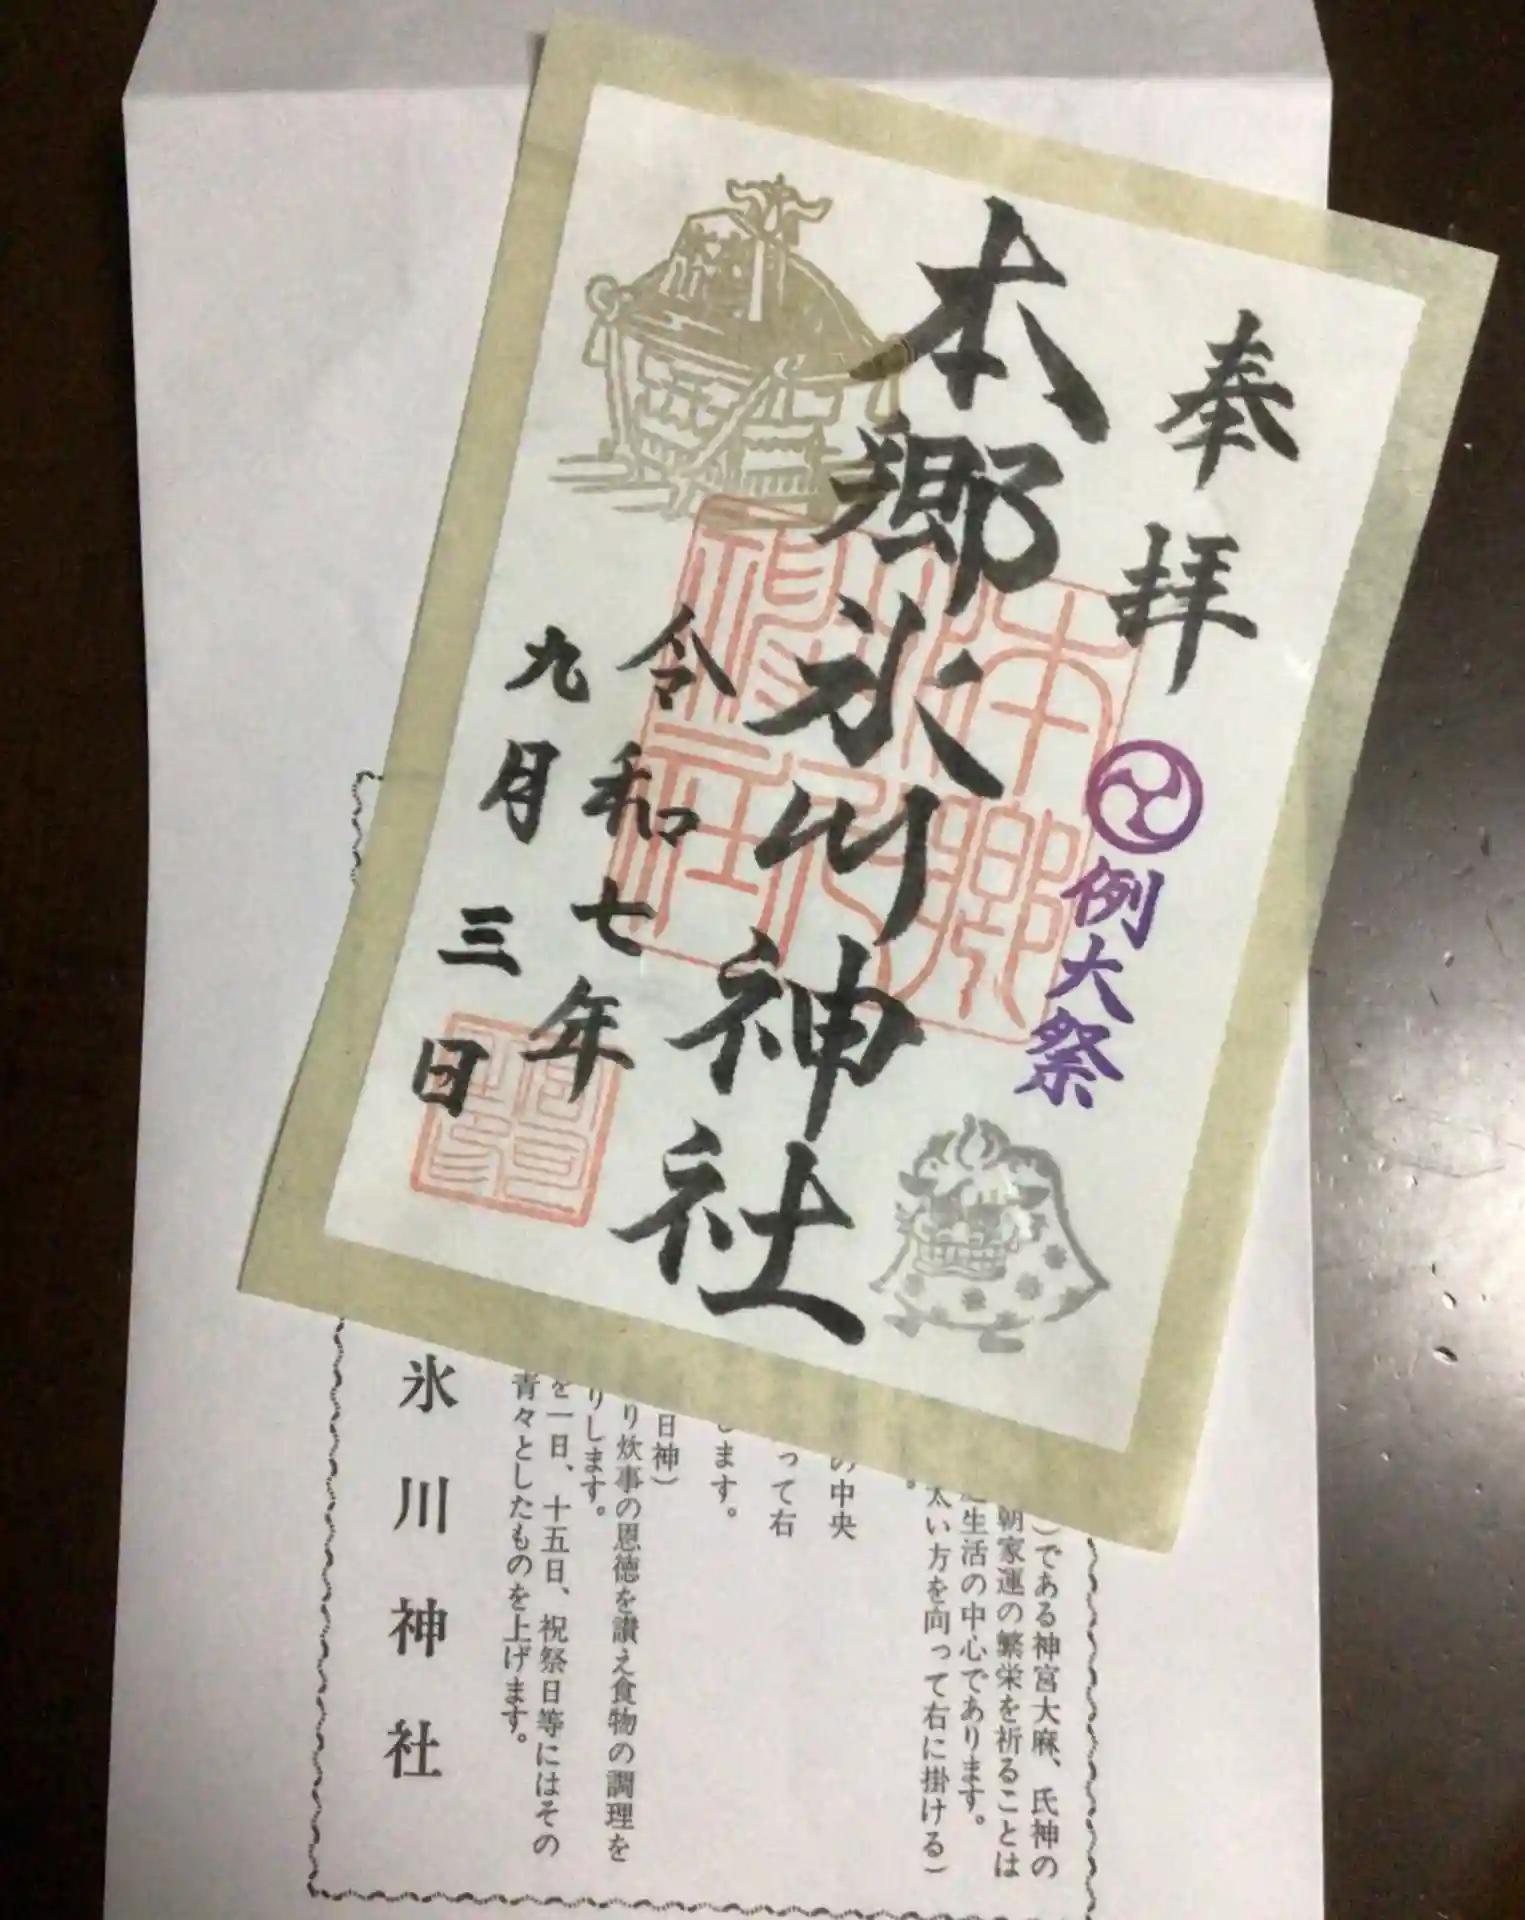 奉拝
例大祭
本郷氷川神社
令和七年
九月三日
本郷氷川神社
)である神宮大麻、氏神の
朝家運の繁栄を祈ることは
生活の中心であります。
太い方を向って右に掛ける)
の中央
って右
します。
日神)
り炊事の恩徳を讃え食物の調理を
りします。
を一日、十五日、祝祭日等にはその
青々としたものを上げます。
氷川神社